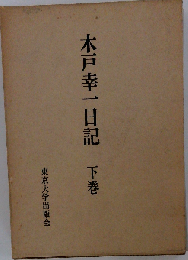 木戸幸一日記 下巻
東京大学出版会